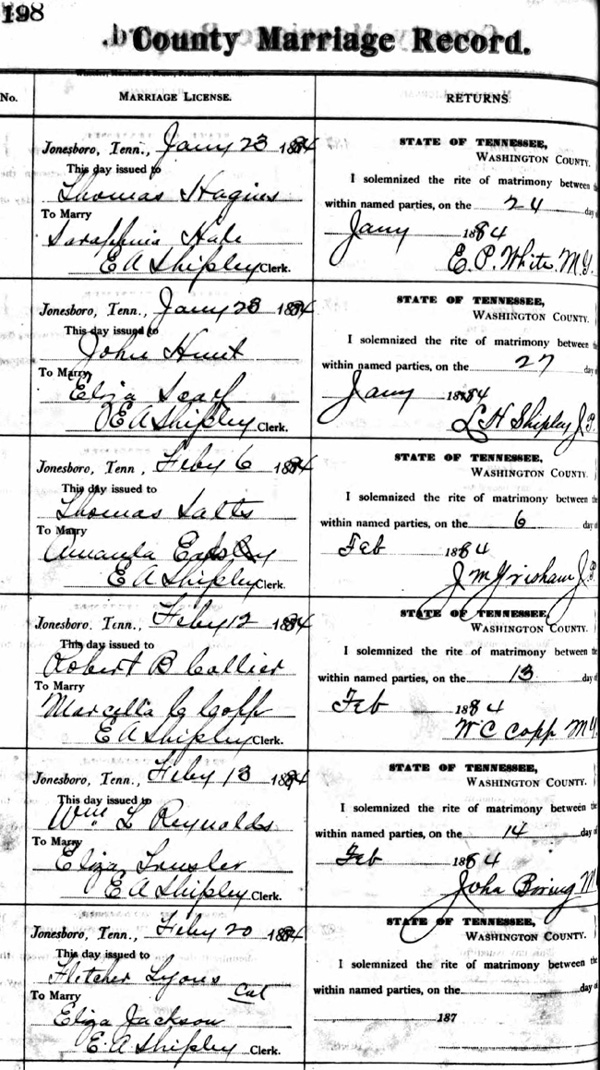 198
County Marriage Record.
No.
MARRIAGE LICENSE.
RETURNS
Jonesboro, Tenn., Jany 23 1884
This day issued to
Thomas Hagins
To Marry
Hale
E A Shipley Clerk.
STATE OF TENNESSEE,
WASHINGTON COUNTY.
I solemnized the rite of matrimony between the
within named parties, on the 24 day
Jany 1884
E. P. White. M.G.
Jonesboro, Tenn., Jany 23 1884
This day issued to
John Hunt
To Marry
Eliza
E A Shipley Clerk.
STATE OF TENNESSEE,
WASHINGTON COUNTY.
I solemnized the rite of matrimony between the
within named parties, on the 27 day
Jany 1884
L H Shipley J.P.
Jonesboro, Tenn., Feby 6 1884
This day issued to
Thomas
To Marry
Amanda
E A Shipley Clerk.
STATE OF TENNESSEE,
WASHINGTON COUNTY.
I solemnized the rite of matrimony between the
within named parties, on the 6 day
Feb 1884
J M Grisham J.P.
Jonesboro, Tenn., Feby 12 1884
This day issued to
Robert B Collier
To Marry
Marcella C Copp
E A Shipley Clerk.
STATE OF TENNESSEE,
WASHINGTON COUNTY.
I solemnized the rite of matrimony between the
within named parties, on the 13 day of
Feb 1884
W C Copp M.G.
Jonesboro, Tenn., Feby 13 1884
This day issued to
Wm L Reynolds
To Marry
Eliza
E A Shipley Clerk.
STATE OF TENNESSEE,
WASHINGTON COUNTY.
I solemnized the rite of matrimony between the
within named parties, on the 14 day of
Feb 1884
John Boring M
Jonesboro, Tenn., Feby 20 1884
This day issued to
Fletcher Lyons
Col
To Marry
Eliza Jackson
E. A. Shipley Clerk.
STATE OF TENNESSEE,
WASHINGTON COUNTY.
I solemnized the rite of matrimony between the
within named parties, on the day of
187